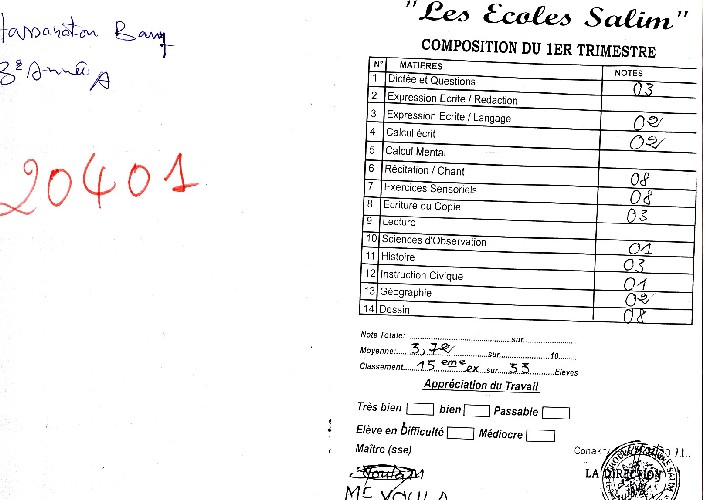 Hassanatou Barry
3e Année A
20401
"Les Ecoles Salim"
COMPOSITION DU 1ER TRIMESTRE
N° MATIÈRES NOTES
1 Dictée et Questions 03
2 Expression Ecrite / Redaction
3 Expression Ecrite / Langage 02
4 Calcul écrit 02
5 Calcul Mental
6 Récitation / Chant 08
7 Exercices Sensoriels 08
8 Ecriture ou Copie 03
9 Lecture
10 Sciences d'Observation 01
11 Histoire 03
12 Instruction Civique 01
13 Géographie 02
14 Dessin 08
Note Totale: sur
Moyenne: 3,72 sur 10
Classement 15eme ex sur 33 Elèves
Appréciation du Travail
Très bien bien Passable
Elève en Difficulté Médiocre
Maître (sse) Conakry
LA DIRECTION
Me VOULA